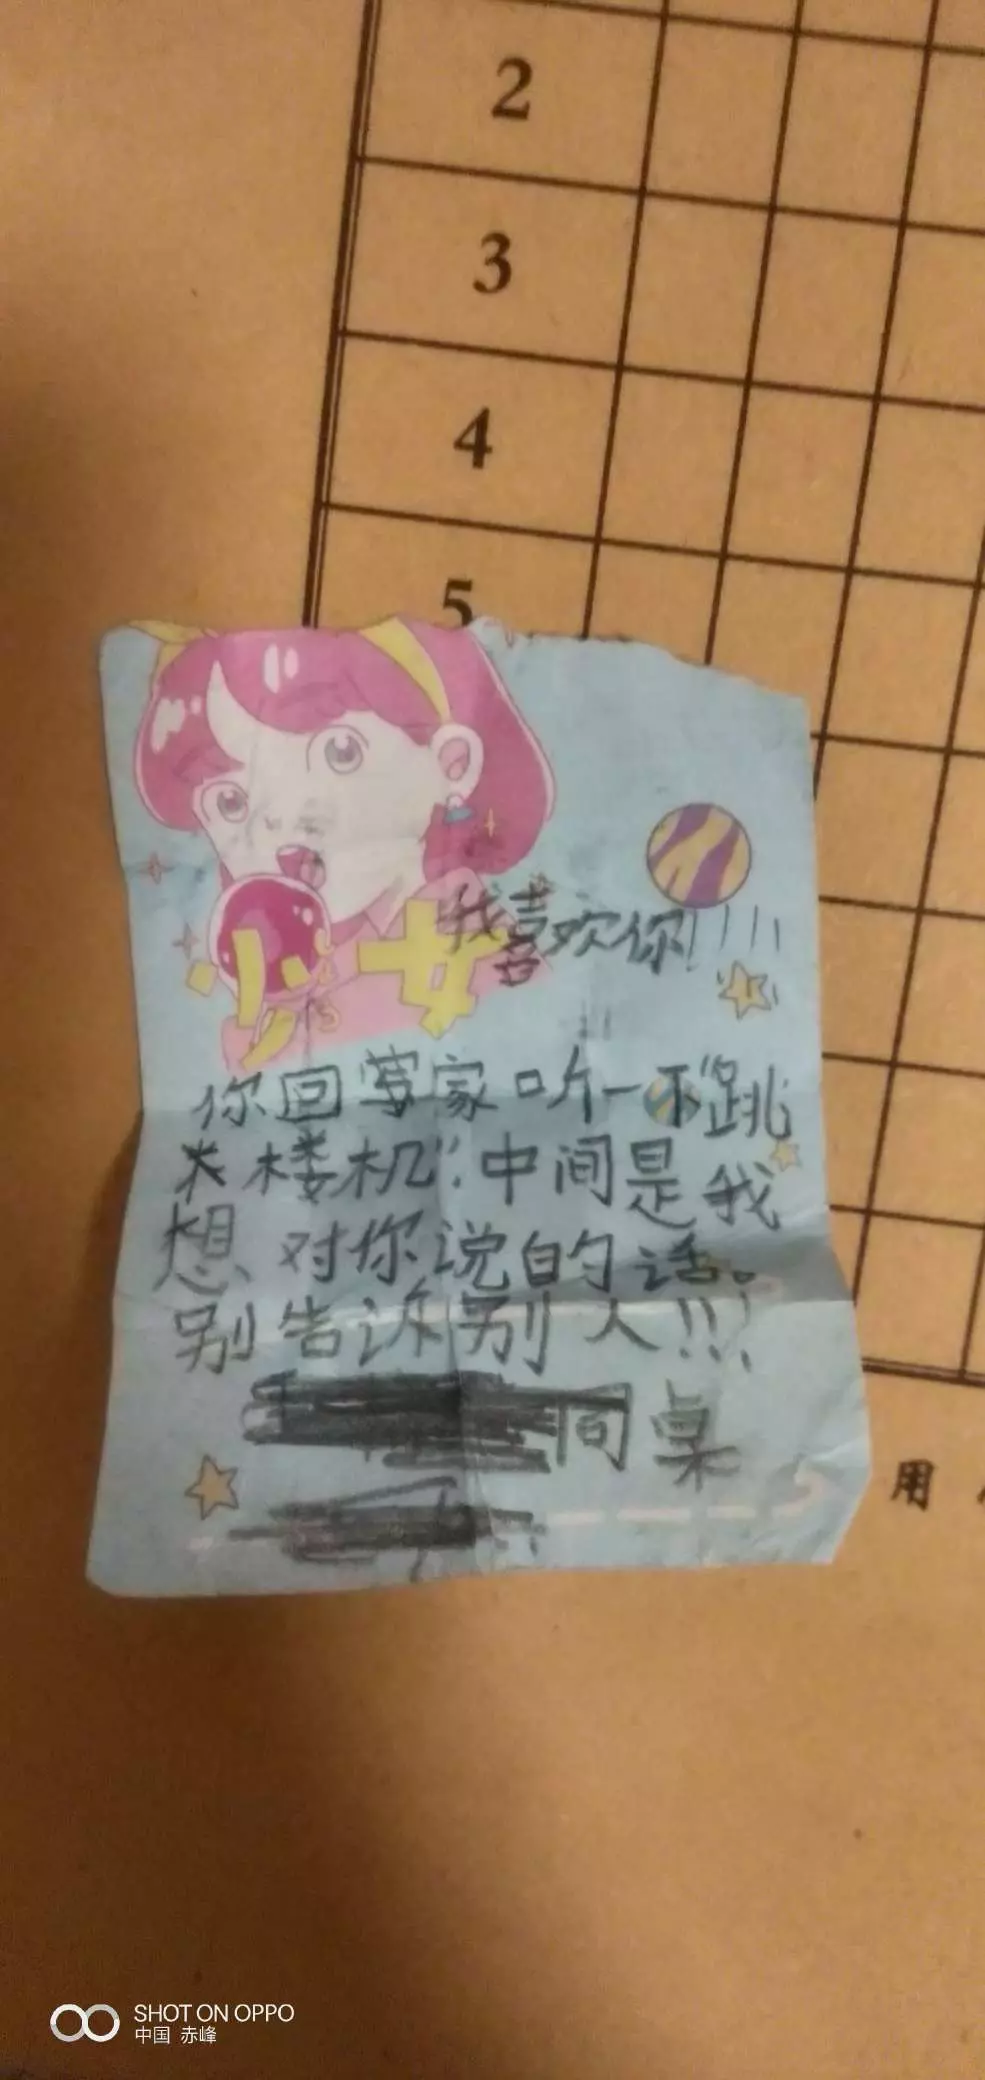 2
3
4
5
少女
我喜欢你!!!!
你回家听一下“跳
楼机”.中间是我
想对你说的话。
别告诉别人!!!
同桌
用
SHOT ON OPPO
中国 赤峰